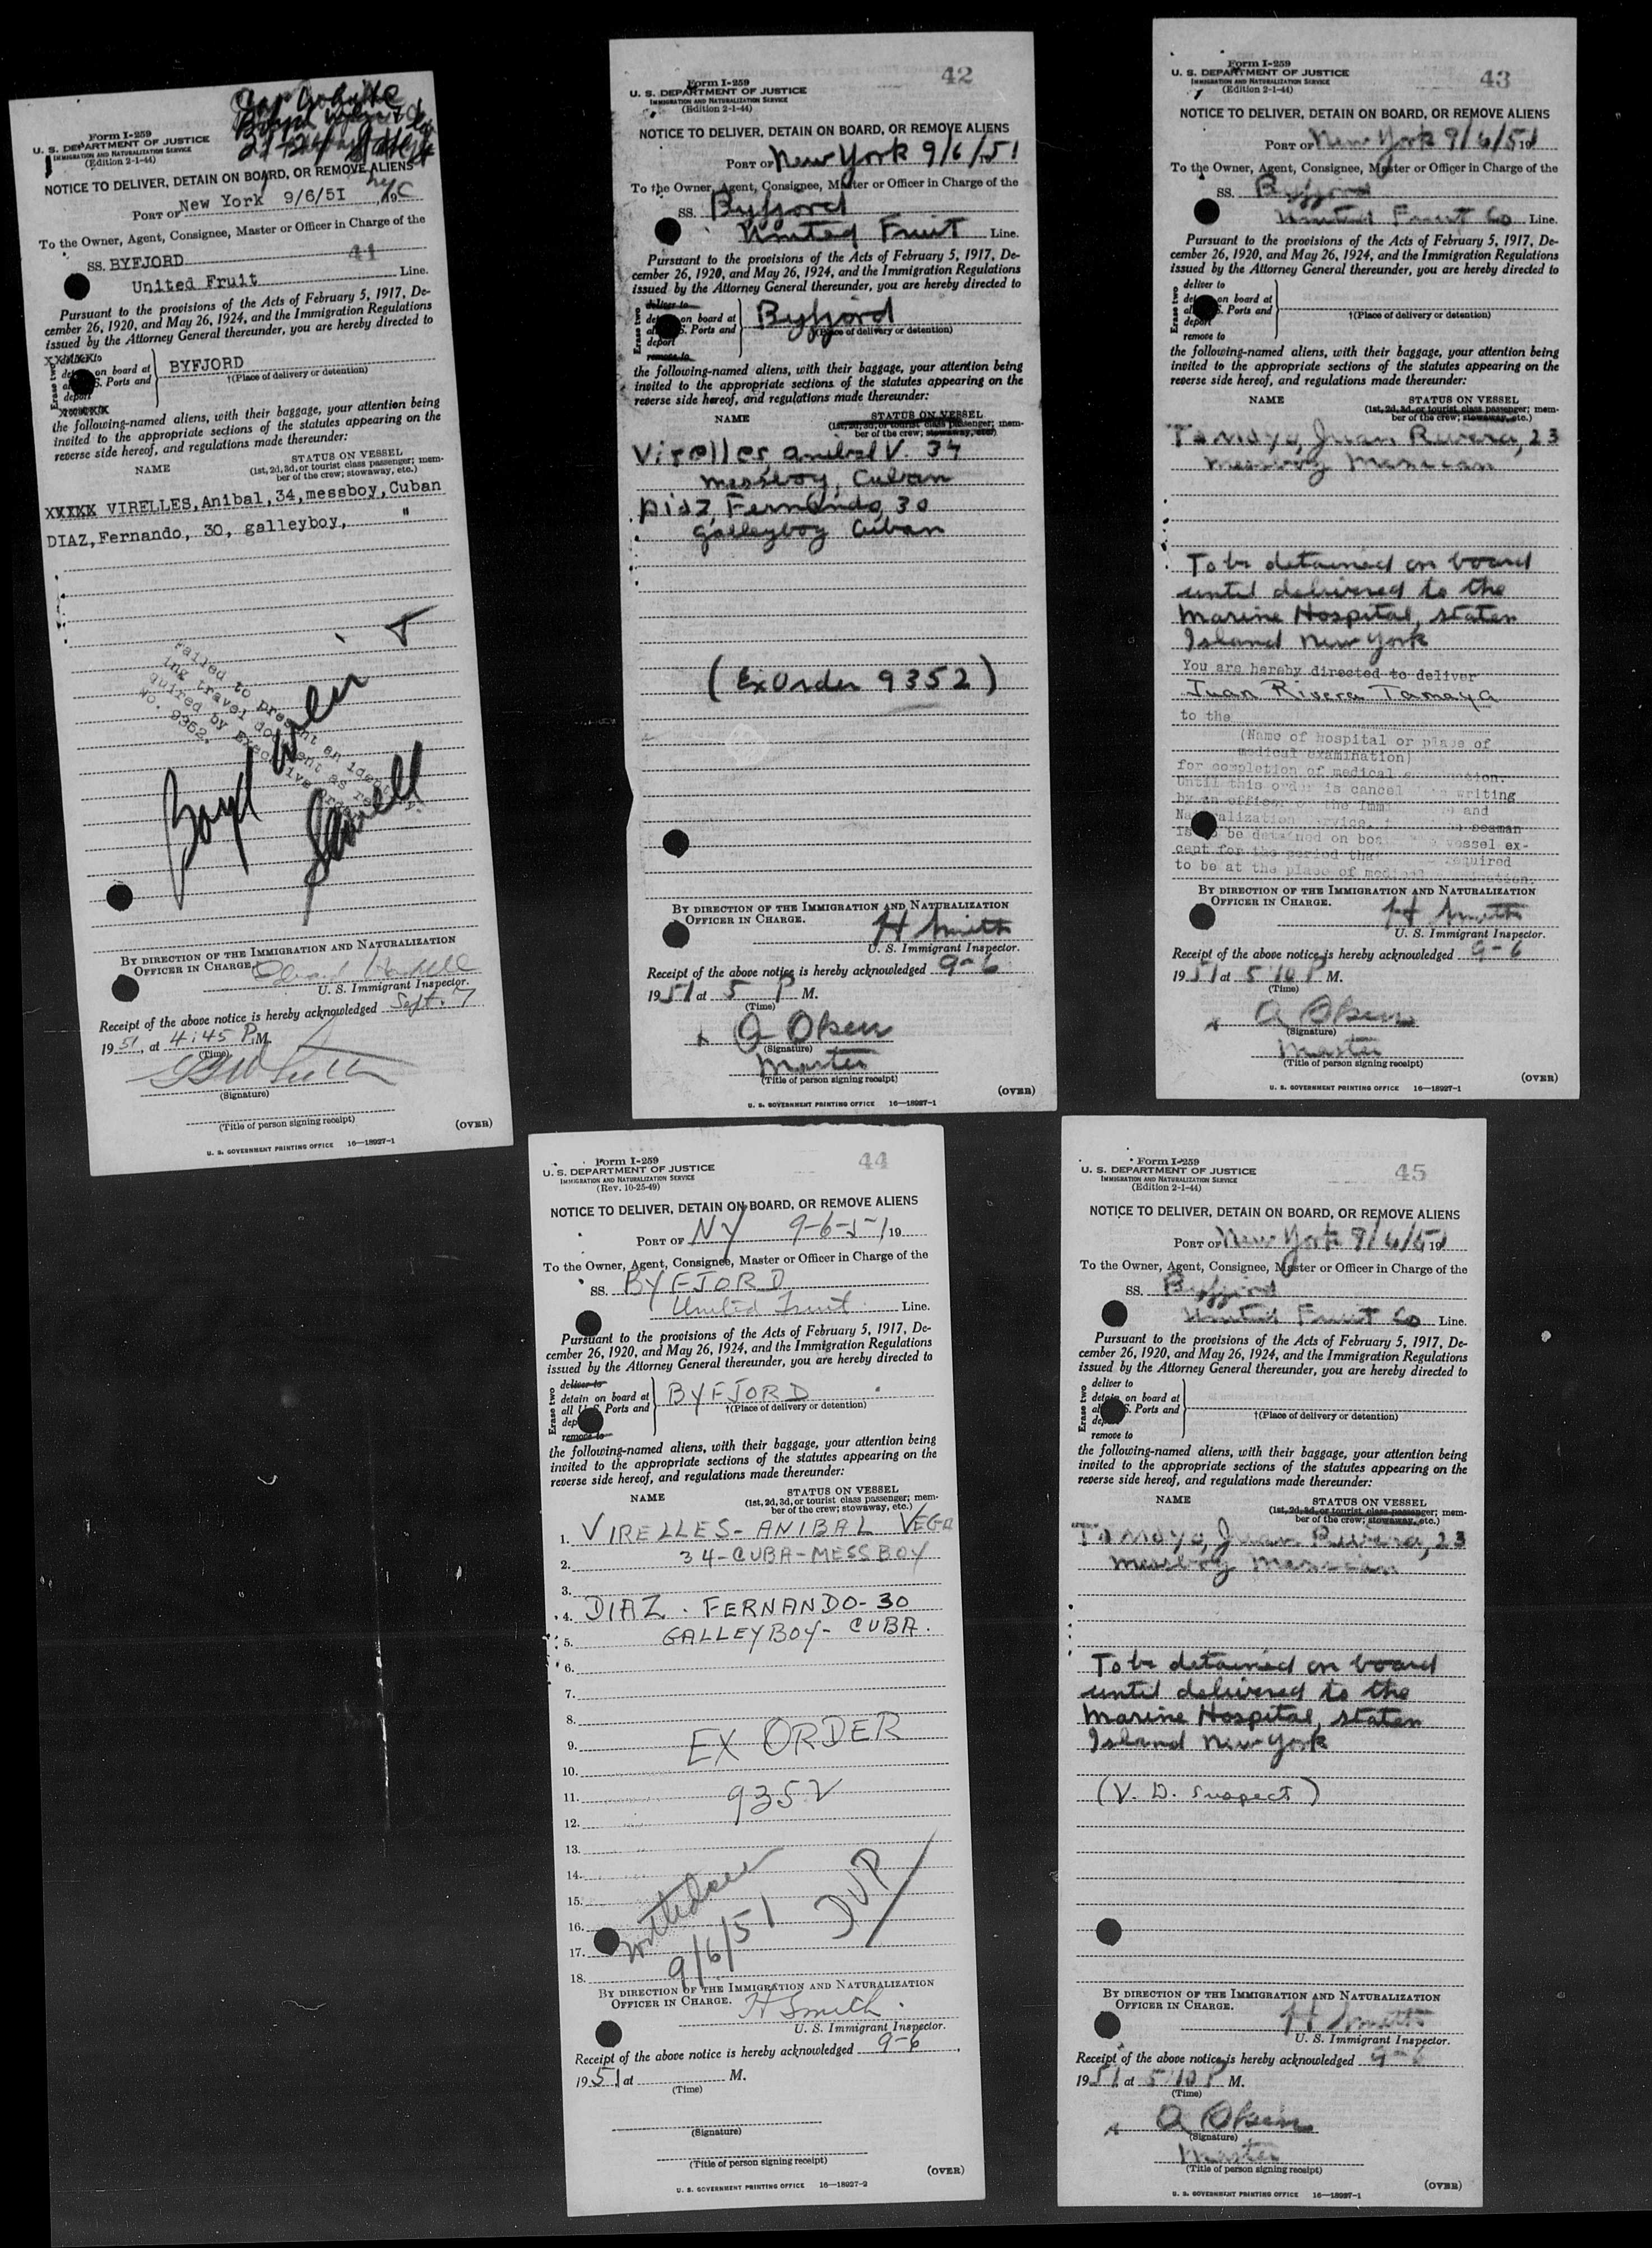 Form I-259
U. S. DEPARTMENT OF JUSTICE
IMMIGRATION AND NATURALIZATION SERVICE
(Edition 2-1-44)
NOTICE TO DELIVER, DETAIN ON BOARD, OR REMOVE ALIENS
PORT OF New York 9/6/51 19 NYC
To the Owner, Agent, Consignee, Master or Officer in Charge of the
SS. BYFJORD 41
United Fruit Line.
Pursuant to the provisions of the Acts of February 5, 1917, De-
cember 26, 1920, and May 26, 1924, and the Immigration Regulations
issued by the Attorney General thereunder, you are hereby directed to
Erase two
on board at BYFJORD
S. Ports and †(Place of delivery or detention)
deport
the following-named aliens, with their baggage, your attention being
invited to the appropriate sections of the statutes appearing on the
reverse side hereof, and regulations made thereunder:
NAME STATUS ON VESSEL
(1st, 2d, 3d, or tourist class passenger; mem-
ber of the crew; stowaway, etc.)
XXXXX VIRELLES, Anibal, 34, messboy, Cuban
DIAZ, Fernando, 30, galleyboy, "
Failed to present an iden
ing travel document as re
quired by Executive Order
No. 9352.
Boyd Weir &
Sewell
BY DIRECTION OF THE IMMIGRATION AND NATURALIZATION
OFFICER IN CHARGE.
U. S. Immigrant Inspector.
Receipt of the above notice is hereby acknowledged Sept. 7
1951, at 4:45 P.M.
(Time)
(Signature)
(Title of person signing receipt)
(OVER)
U. S. GOVERNMENT PRINTING OFFICE 16—18927-1
42
Form I-259
U. S. DEPARTMENT OF JUSTICE
IMMIGRATION AND NATURALIZATION SERVICE
(Edition 2-1-44)
NOTICE TO DELIVER, DETAIN ON BOARD, OR REMOVE ALIENS
PORT OF New York 9/6/51
To the Owner, Agent, Consignee, Master or Officer in Charge of the
SS. Byfjord
United Fruit Line.
Pursuant to the provisions of the Acts of February 5, 1917, De-
cember 26, 1920, and May 26, 1924, and the Immigration Regulations
issued by the Attorney General thereunder, you are hereby directed to
Erase two
deliver to
on board at Byfjord
S. Ports and (Place of delivery or detention)
deport
remove to
the following-named aliens, with their baggage, your attention being
invited to the appropriate sections of the statutes appearing on the
reverse side hereof, and regulations made thereunder:
NAME STATUS ON VESSEL
(1st, 2d, 3d, or tourist class passenger; mem-
ber of the crew; stowaway, etc.)
Virelles, Anibal V. 34
messboy, Cuban
Diaz, Fernando, 30
galleyboy Cuban
(Ex Order 9352)
BY DIRECTION OF THE IMMIGRATION AND NATURALIZATION
OFFICER IN CHARGE.
H Smith
U. S. Immigrant Inspector.
Receipt of the above notice is hereby acknowledged 9-6
1951 at 5 P M.
(Time)
x A Olsen
(Signature)
Master
(Title of person signing receipt)
(OVER)
U. S. GOVERNMENT PRINTING OFFICE 16—18927-1
43
Form I-259
U. S. DEPARTMENT OF JUSTICE
IMMIGRATION AND NATURALIZATION SERVICE
(Edition 2-1-44)
NOTICE TO DELIVER, DETAIN ON BOARD, OR REMOVE ALIENS
PORT OF New York 9/6/51 19
To the Owner, Agent, Consignee, Master or Officer in Charge of the
SS. Byfjord
United Fruit Co Line.
Pursuant to the provisions of the Acts of February 5, 1917, De-
cember 26, 1920, and May 26, 1924, and the Immigration Regulations
issued by the Attorney General thereunder, you are hereby directed to
Erase two
deliver to
on board at
S. Ports and †(Place of delivery or detention)
deport
remove to
the following-named aliens, with their baggage, your attention being
invited to the appropriate sections of the statutes appearing on the
reverse side hereof, and regulations made thereunder:
NAME STATUS ON VESSEL
(1st, 2d, 3d, or tourist class passenger; mem-
ber of the crew; stowaway, etc.)
Tamayo, Juan Rivera, 23
messboy Mexican
To be detained on board
until delivered to the
Marine Hospital, Staten
Island New York
You are hereby directed to deliver
Juan Rivera Tamaya
to the
(Name of hospital or place of
medical examination)
for completion of medical
Until this order is cancel writing
by an officer of the Immi and
Naturalization Service, seaman
is to be detained on boa vessel ex-
cept for the period that required
to be at the place of medical
BY DIRECTION OF THE IMMIGRATION AND NATURALIZATION
OFFICER IN CHARGE.
H Smith
U. S. Immigrant Inspector.
Receipt of the above notice is hereby acknowledged 9-6
1951 at 5 10 P M.
(Time)
x A Olsen
(Signature)
Master
(Title of person signing receipt)
(OVER)
U. S. GOVERNMENT PRINTING OFFICE 16—18927-1
44
Form I-259
U. S. DEPARTMENT OF JUSTICE
IMMIGRATION AND NATURALIZATION SERVICE
(Rev. 10-25-49)
NOTICE TO DELIVER, DETAIN ON BOARD, OR REMOVE ALIENS
PORT OF NY 9-6-51 19
To the Owner, Agent, Consignee, Master or Officer in Charge of the
SS. BYFJORD
United Fruit Line.
Pursuant to the provisions of the Acts of February 5, 1917, De-
cember 26, 1920, and May 26, 1924, and the Immigration Regulations
issued by the Attorney General thereunder, you are hereby directed to
Erase two
deliver to
detain on board at BYFJORD
all U. S. Ports and †(Place of delivery or detention)
remove to
the following-named aliens, with their baggage, your attention being
invited to the appropriate sections of the statutes appearing on the
reverse side hereof, and regulations made thereunder:
NAME STATUS ON VESSEL
(1st, 2d, 3d, or tourist class passenger; mem-
ber of the crew; stowaway, etc.)
1. VIRELLES- ANIBAL VEGA
2. 34-CUBA-MESSBOY
3.
4. DIAZ. FERNANDO-30
5. GALLEYBOY- CUBA.
6.
7.
8.
9. EX ORDER
10.
11. 9352
12.
13.
14.
15.
16.
17.
18. 9/6/51
BY DIRECTION OF THE IMMIGRATION AND NATURALIZATION
OFFICER IN CHARGE. H Smith.
U. S. Immigrant Inspector.
Receipt of the above notice is hereby acknowledged 9-6
1951 at M.
(Time)
(Signature)
(Title of person signing receipt)
(OVER)
U. S. GOVERNMENT PRINTING OFFICE 16—18927-2
45
Form I-259
U. S. DEPARTMENT OF JUSTICE
IMMIGRATION AND NATURALIZATION SERVICE
(Edition 2-1-44)
NOTICE TO DELIVER, DETAIN ON BOARD, OR REMOVE ALIENS
PORT OF New York 9/6/51 19
To the Owner, Agent, Consignee, Master or Officer in Charge of the
SS. Byfjord
United Fruit Co Line.
Pursuant to the provisions of the Acts of February 5, 1917, De-
cember 26, 1920, and May 26, 1924, and the Immigration Regulations
issued by the Attorney General thereunder, you are hereby directed to
Erase two
deliver to
detain on board at
S. Ports and †(Place of delivery or detention)
remove to
the following-named aliens, with their baggage, your attention being
invited to the appropriate sections of the statutes appearing on the
reverse side hereof, and regulations made thereunder:
NAME STATUS ON VESSEL
(1st, 2d, 3d, or tourist class passenger; mem-
ber of the crew; stowaway, etc.)
Tamayo, Juan Rivera, 23
messboy Mexican
To be detained on board
until delivered to the
Marine Hospital, Staten
Island New York
(V. D. Suspect)
BY DIRECTION OF THE IMMIGRATION AND NATURALIZATION
OFFICER IN CHARGE.
H Smith
U. S. Immigrant Inspector.
Receipt of the above notice is hereby acknowledged 9-6
1951 at 5 10 P M.
(Time)
x A Olsen
(Signature)
Master
(Title of person signing receipt)
(OVER)
U. S. GOVERNMENT PRINTING OFFICE 16—18927-1